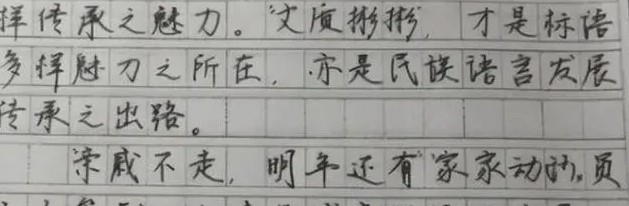 样传承之魅力。文质彬彬,才是标语
多样魅力之所在,亦是民族语言发展
传承之出路。
亲戚不走,明年还有家家动的。员